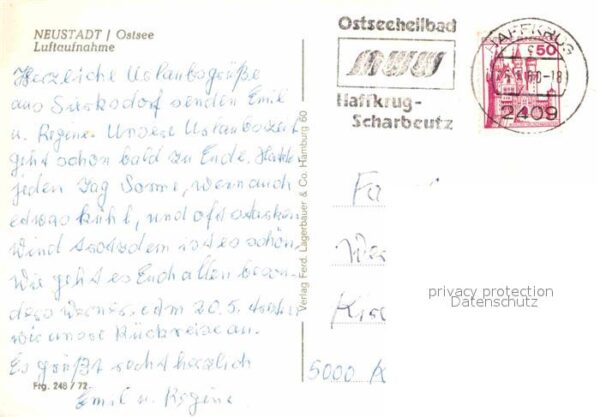 NEUSTADT / Ostsee
Luftaufnahme
Herzliche Urlaubsgrüße
aus Sierksdorf senden Emil
u. Regine. Unsere Urlaubszeit
geht schon bald zu Ende. Hatten
jeden Tag Sonne, wenn auch
etwas kühl, und oft starken
Wind trotzdem ist es schön.
Wie geht es Euch allen beson-
ders Werner. Am 20.5. treten
wir unsere Rückreise an.
Es grüßt recht herzlich
Emil u. Regine
Frg. 248 / 72
Verlag Ferd. Lagerbauer & Co. Hamburg 60
Ostseeheilbad
Haffkrug-
Scharbeutz
HAFFKRUG
-18
2409
50
Fa
Kir
5000 K
privacy protection
Datenschutz